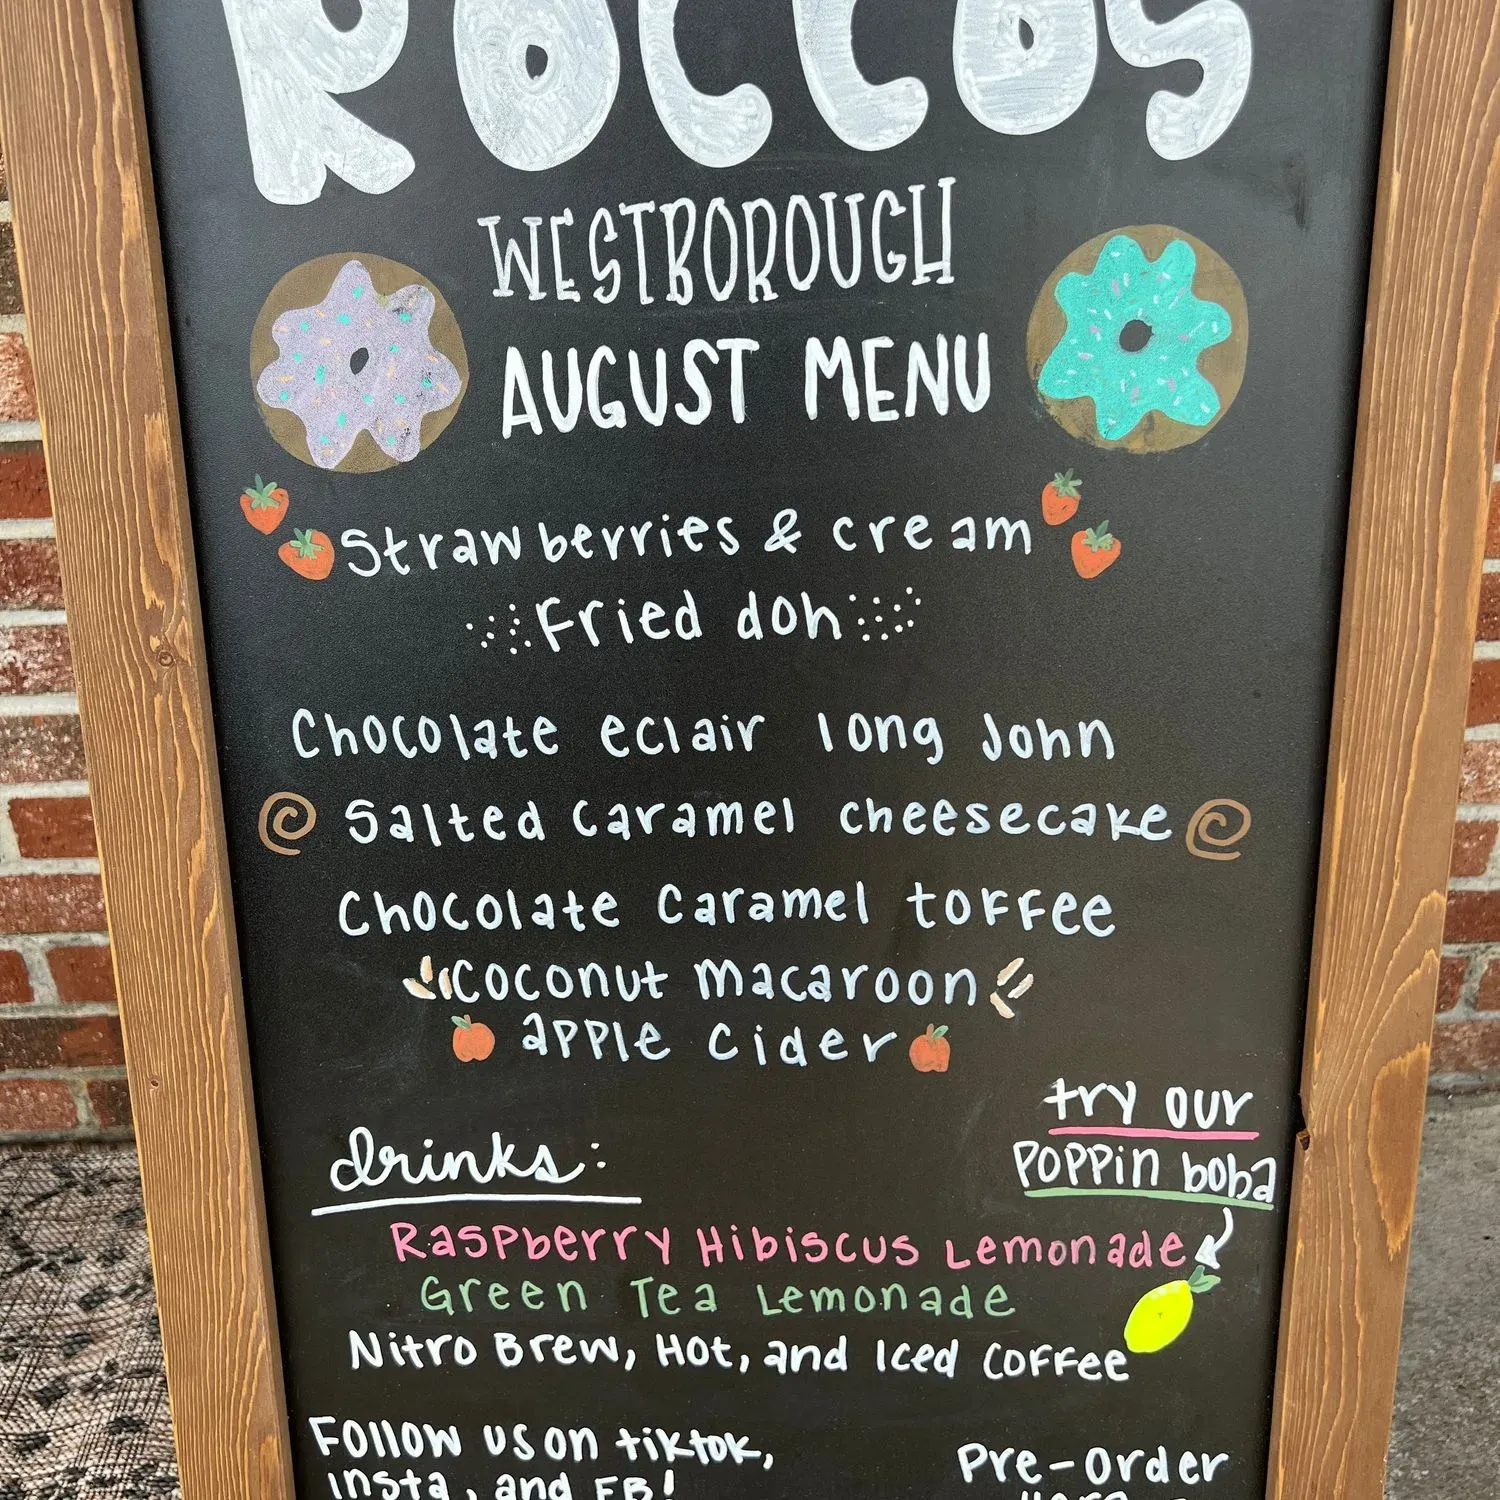 ROCCOS
WESTBOROUGH
AUGUST MENU
Strawberries & cream
Fried doh
Chocolate eclair long John
Salted Caramel cheesecake
Chocolate Caramel toffee
Coconut macaroon
apple cider
try our
poppin boba
drinks:
Raspberry Hibiscus Lemonade
Green Tea Lemonade
Nitro Brew, Hot, and Iced Coffee
Follow us on tiktok,
insta, and FB!
Pre-order
Here